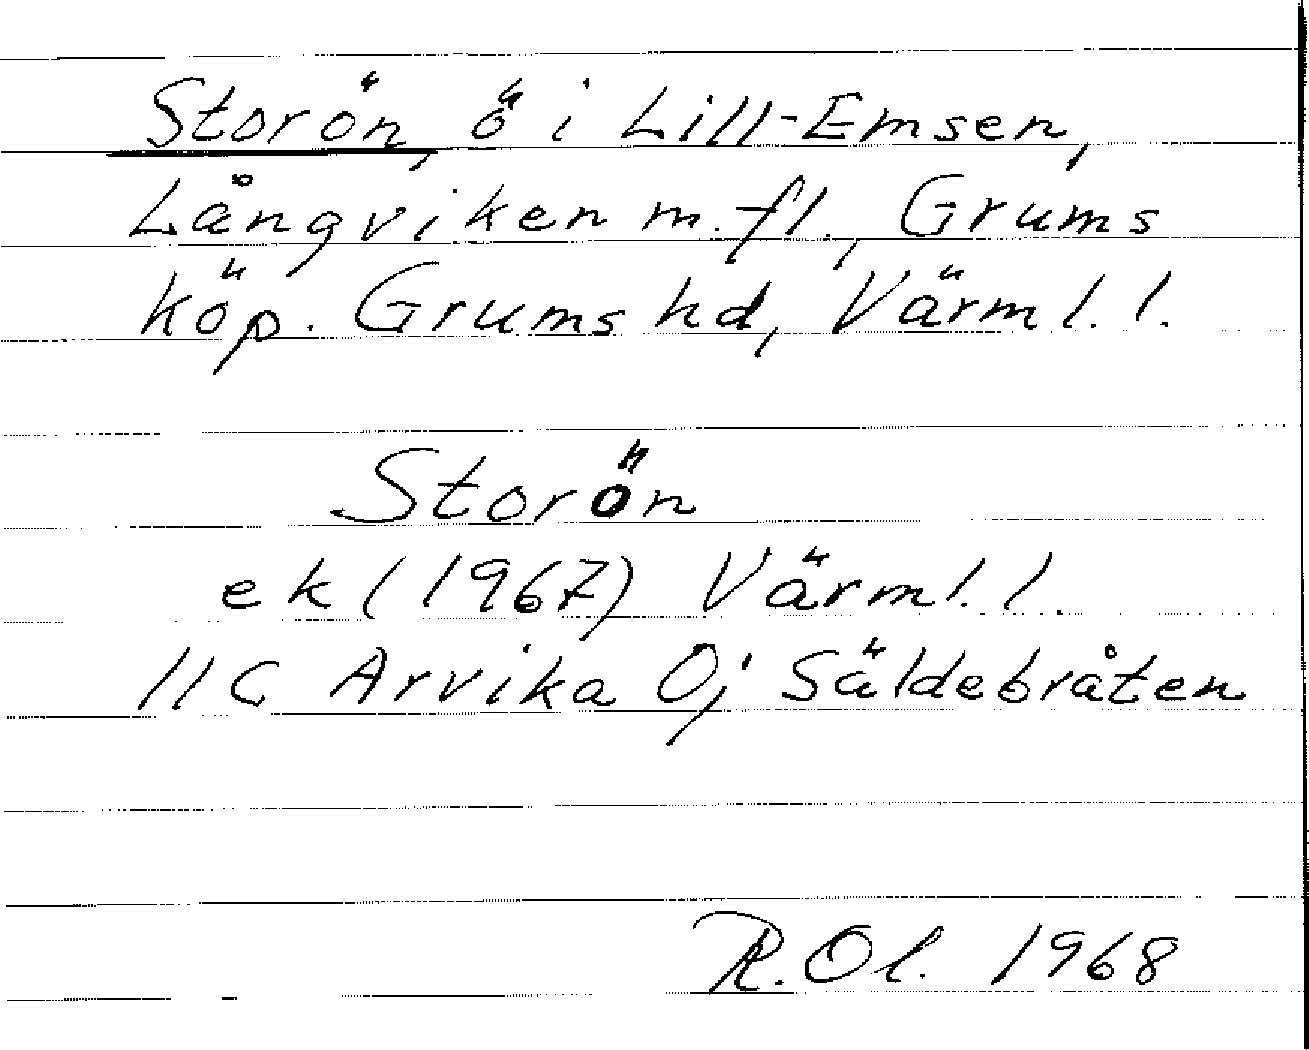 Storön, ö i Lill-Emsen,
Långviken m.fl., Grums
köp. Grums hd, Värml. l.
Storön
ek (1967) Värml. l.
11C Arvika Ö; Säldebråten
R.Ol. 1968